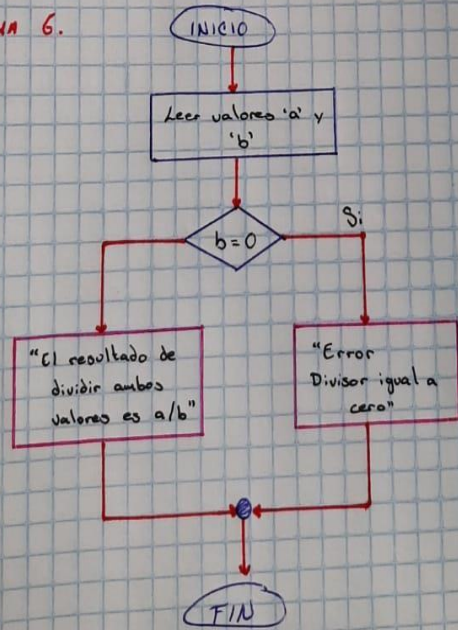 6.
INICIO
Leer valores 'a' y
'b'
b = 0
Si
"El resultado de
dividir ambos
valores es a/b"
"Error
Divisor igual a
cero"
FIN